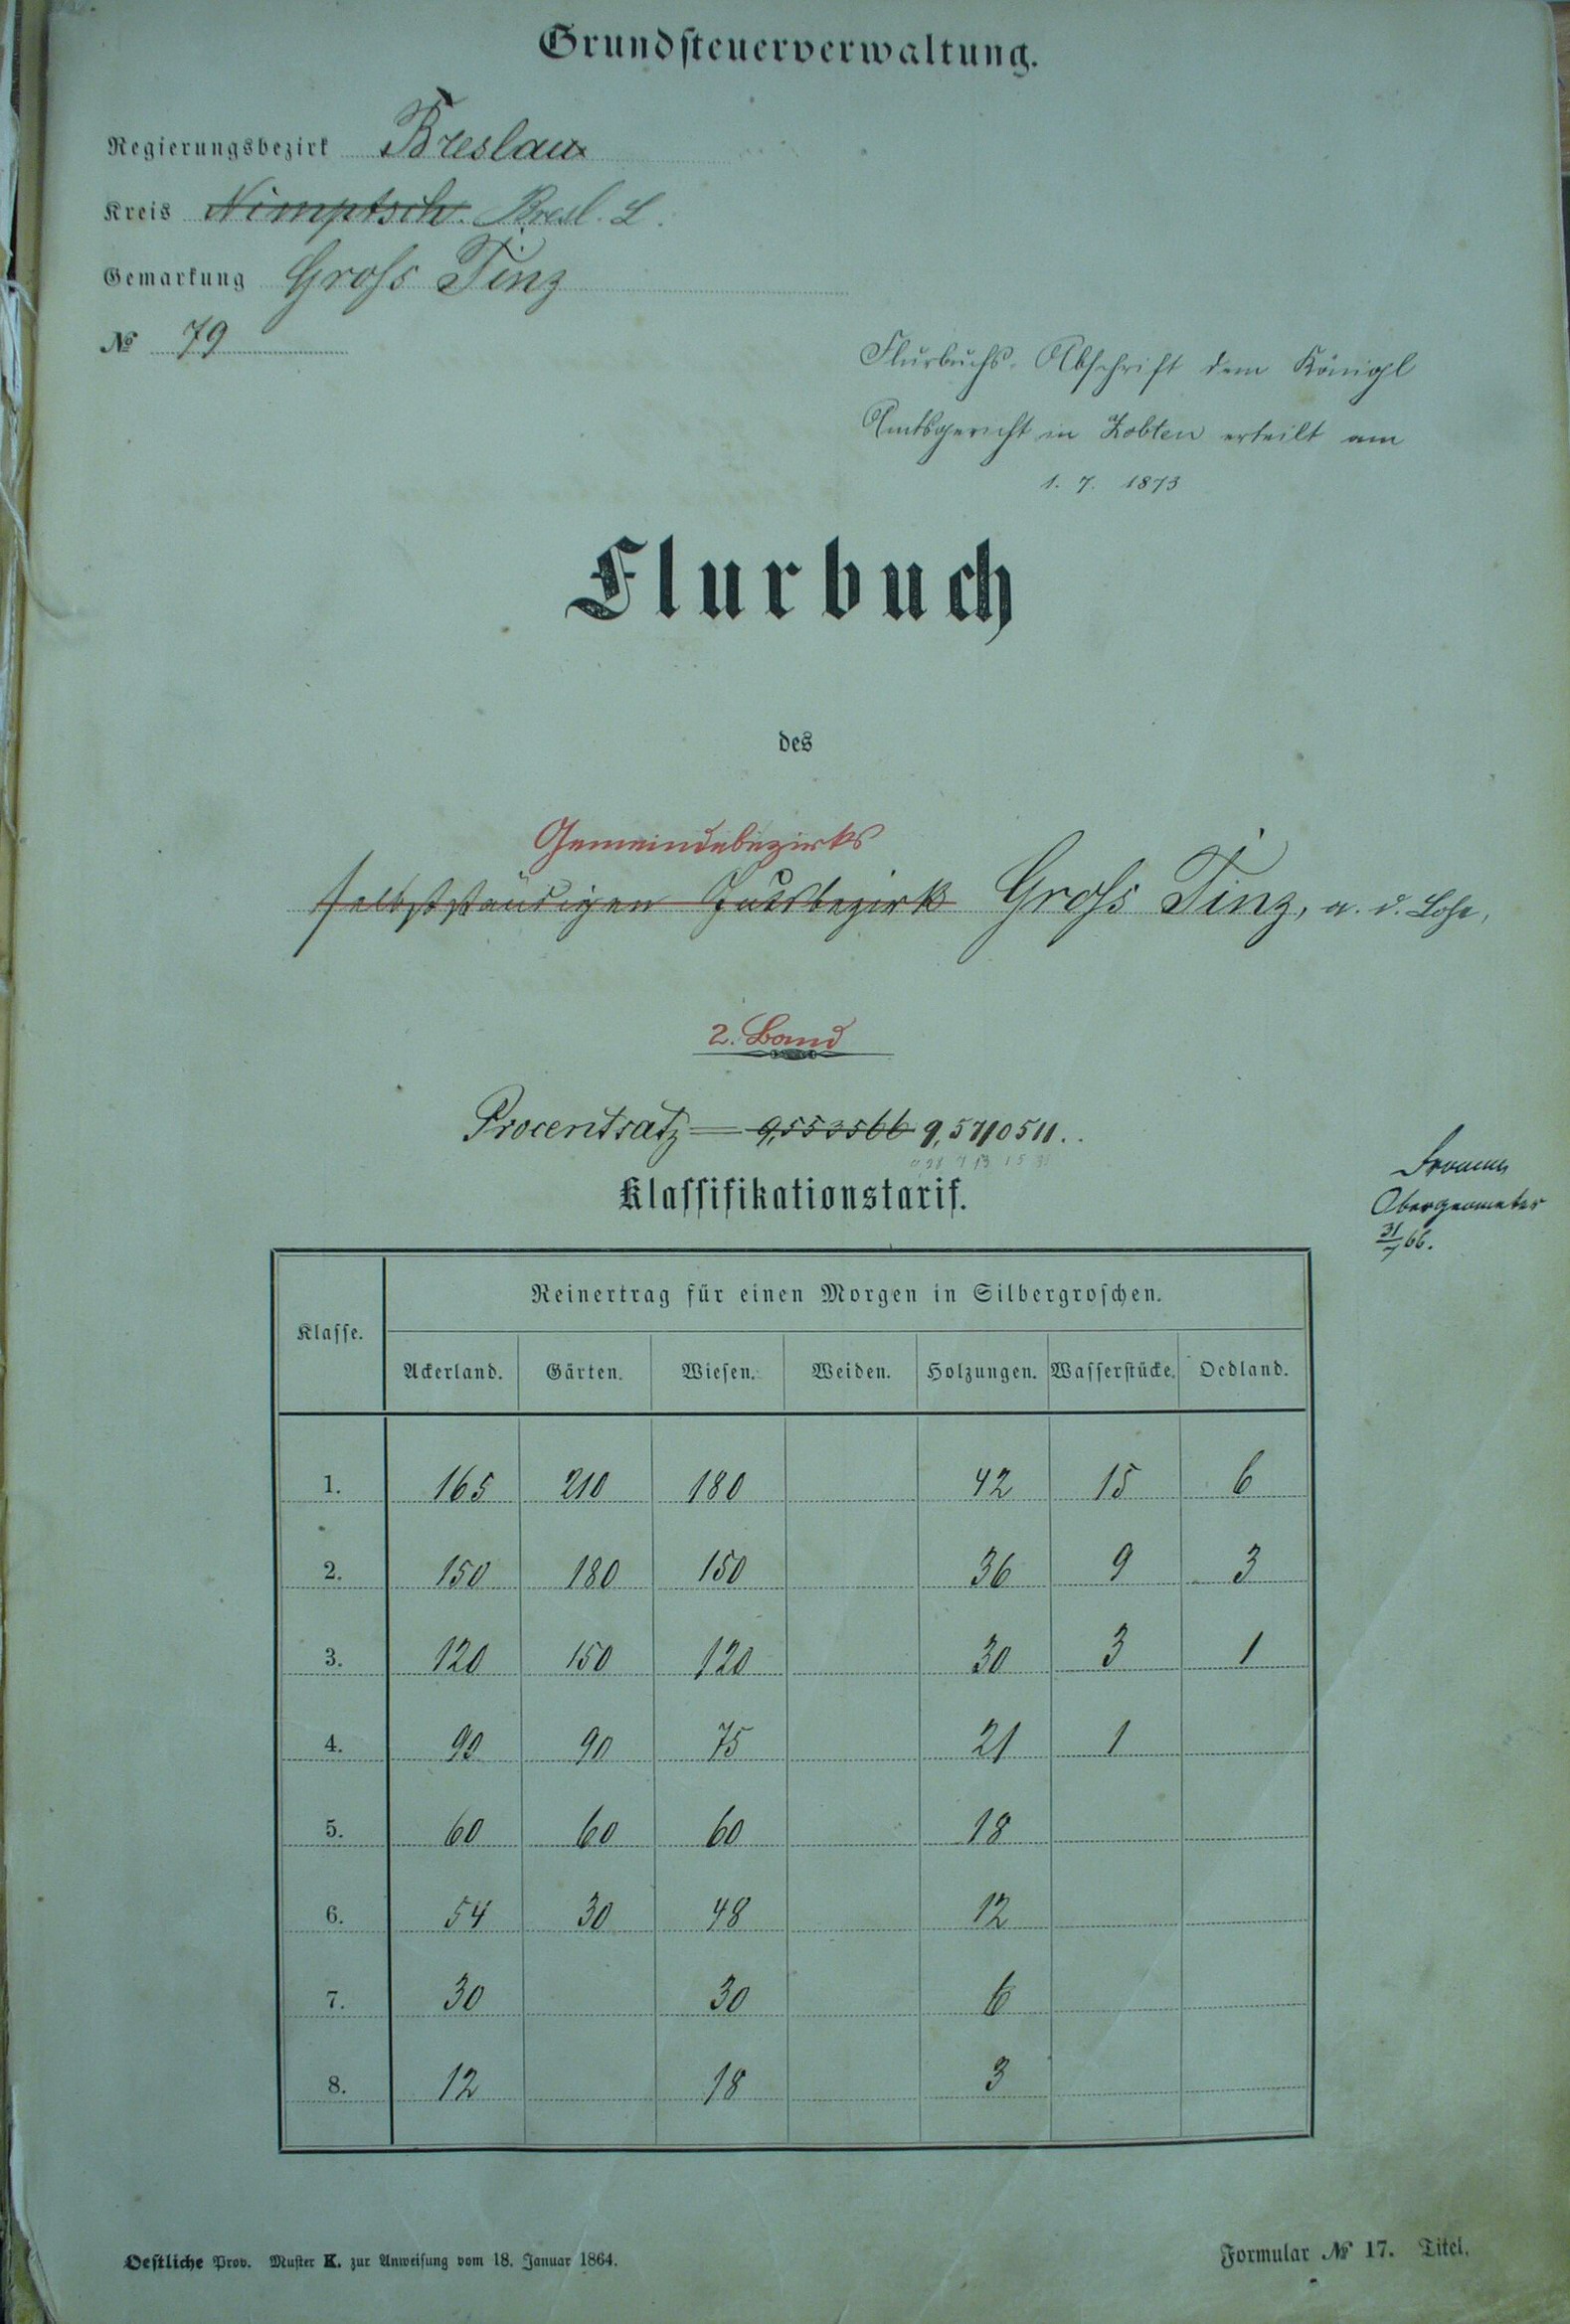 Grundsteuerverwaltung.
Regierungsbezirk Breslau
Kreis Nimptsch. Bresl. L.
Gemarkung Gross Tinz
№ 79
Flurbuchs-Abschrift dem Königl
Amtsgericht in Zobten erteilt am
1. 7. 1873
Flurbuch
des
Gemeindebezirks
selbstständigen Gutsbezirk Gross Tinz, a. d. Lohe,
2. Band
Procentsatz = 9,553566
Klassifikationstarif.
Obergeometer
31/7 66.
Klasse. Reinertrag für einen Morgen in Silbergroschen.
Ackerland. Gärten. Wiesen. Weiden. Holzungen. Wasserstücke. Oedland.
1. 165 210 180 42 15 6
2. 150 180 150 36 9 3
3. 120 150 120 30 3 1
4. 90 90 75 21 1
5. 60 60 60 18
6. 54 30 48 12
7. 30 30 6
8. 12 18 3
Oestliche Prov. Muster K. zur Anweisung vom 18. Januar 1864.
Formular № 17. Titel.